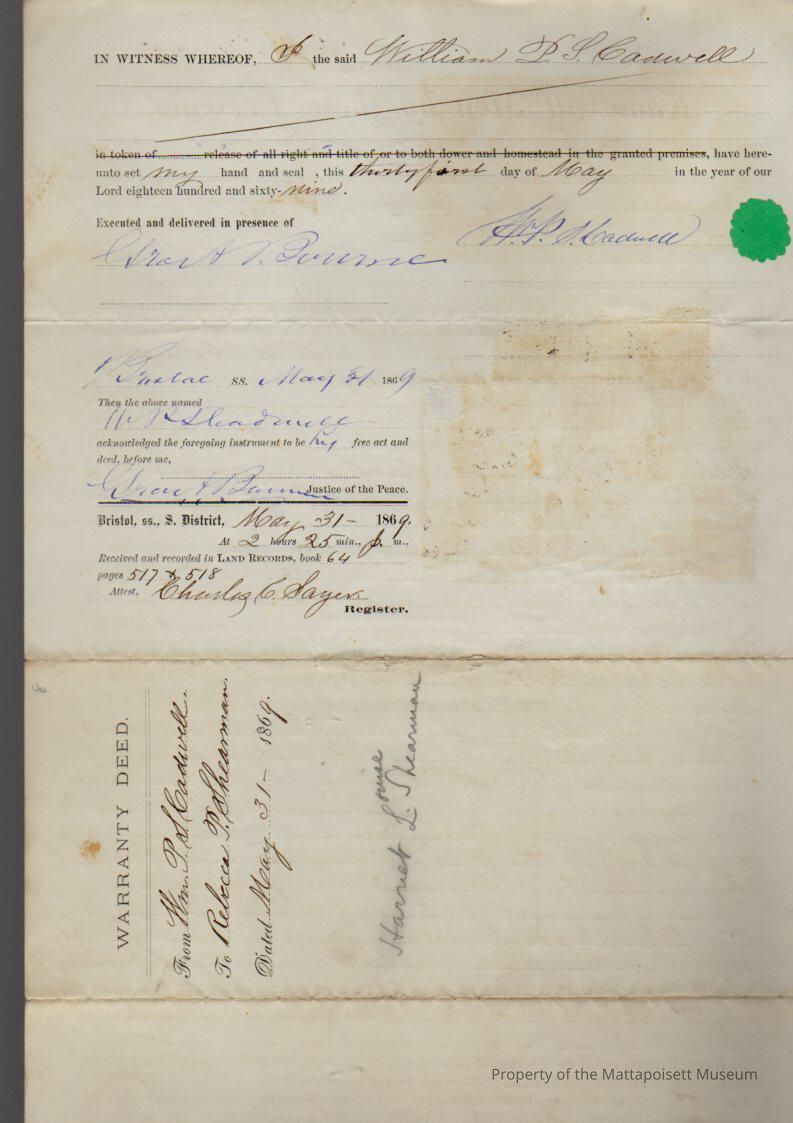 IN WITNESS WHEREOF, I the said William P. S. Cadwell
in token of release of all right and title of or to both dower and homestead in the granted premises, have here-
unto set my hand and seal , this thirty first day of May in the year of our
Lord eighteen hundred and sixty-nine.
Executed and delivered in presence of
W. P. S. Cadwell
Bourne
Bristol SS. May 31 1869
Then the above named
W P S Cadwell
acknowledged the foregoing instrument to be his free act and
deed, before me,
Justice of the Peace.
Bristol, ss., S. District, May 31- 1869.
At 2 hours 25 min., p. m.,
Received and recorded in LAND RECORDS, book 64
pages 517 & 518
Attest, Charles C. Sayer
Register.
8
WARRANTY DEED.
From Wm. P. S. Cadwell.
To Rebecca P. Shearman.
Dated May 31- 1869.
Harriet L. Shearman
ouise
Property of the Mattapoisett Museum